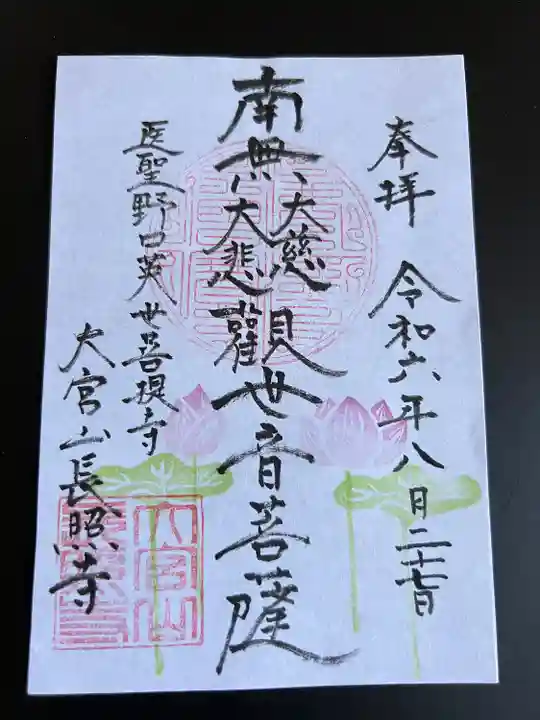 奉拝 令和六年八月二十七日
南無大慈大悲觀世音菩薩
医聖野口英世菩提寺
大宮山長照寺